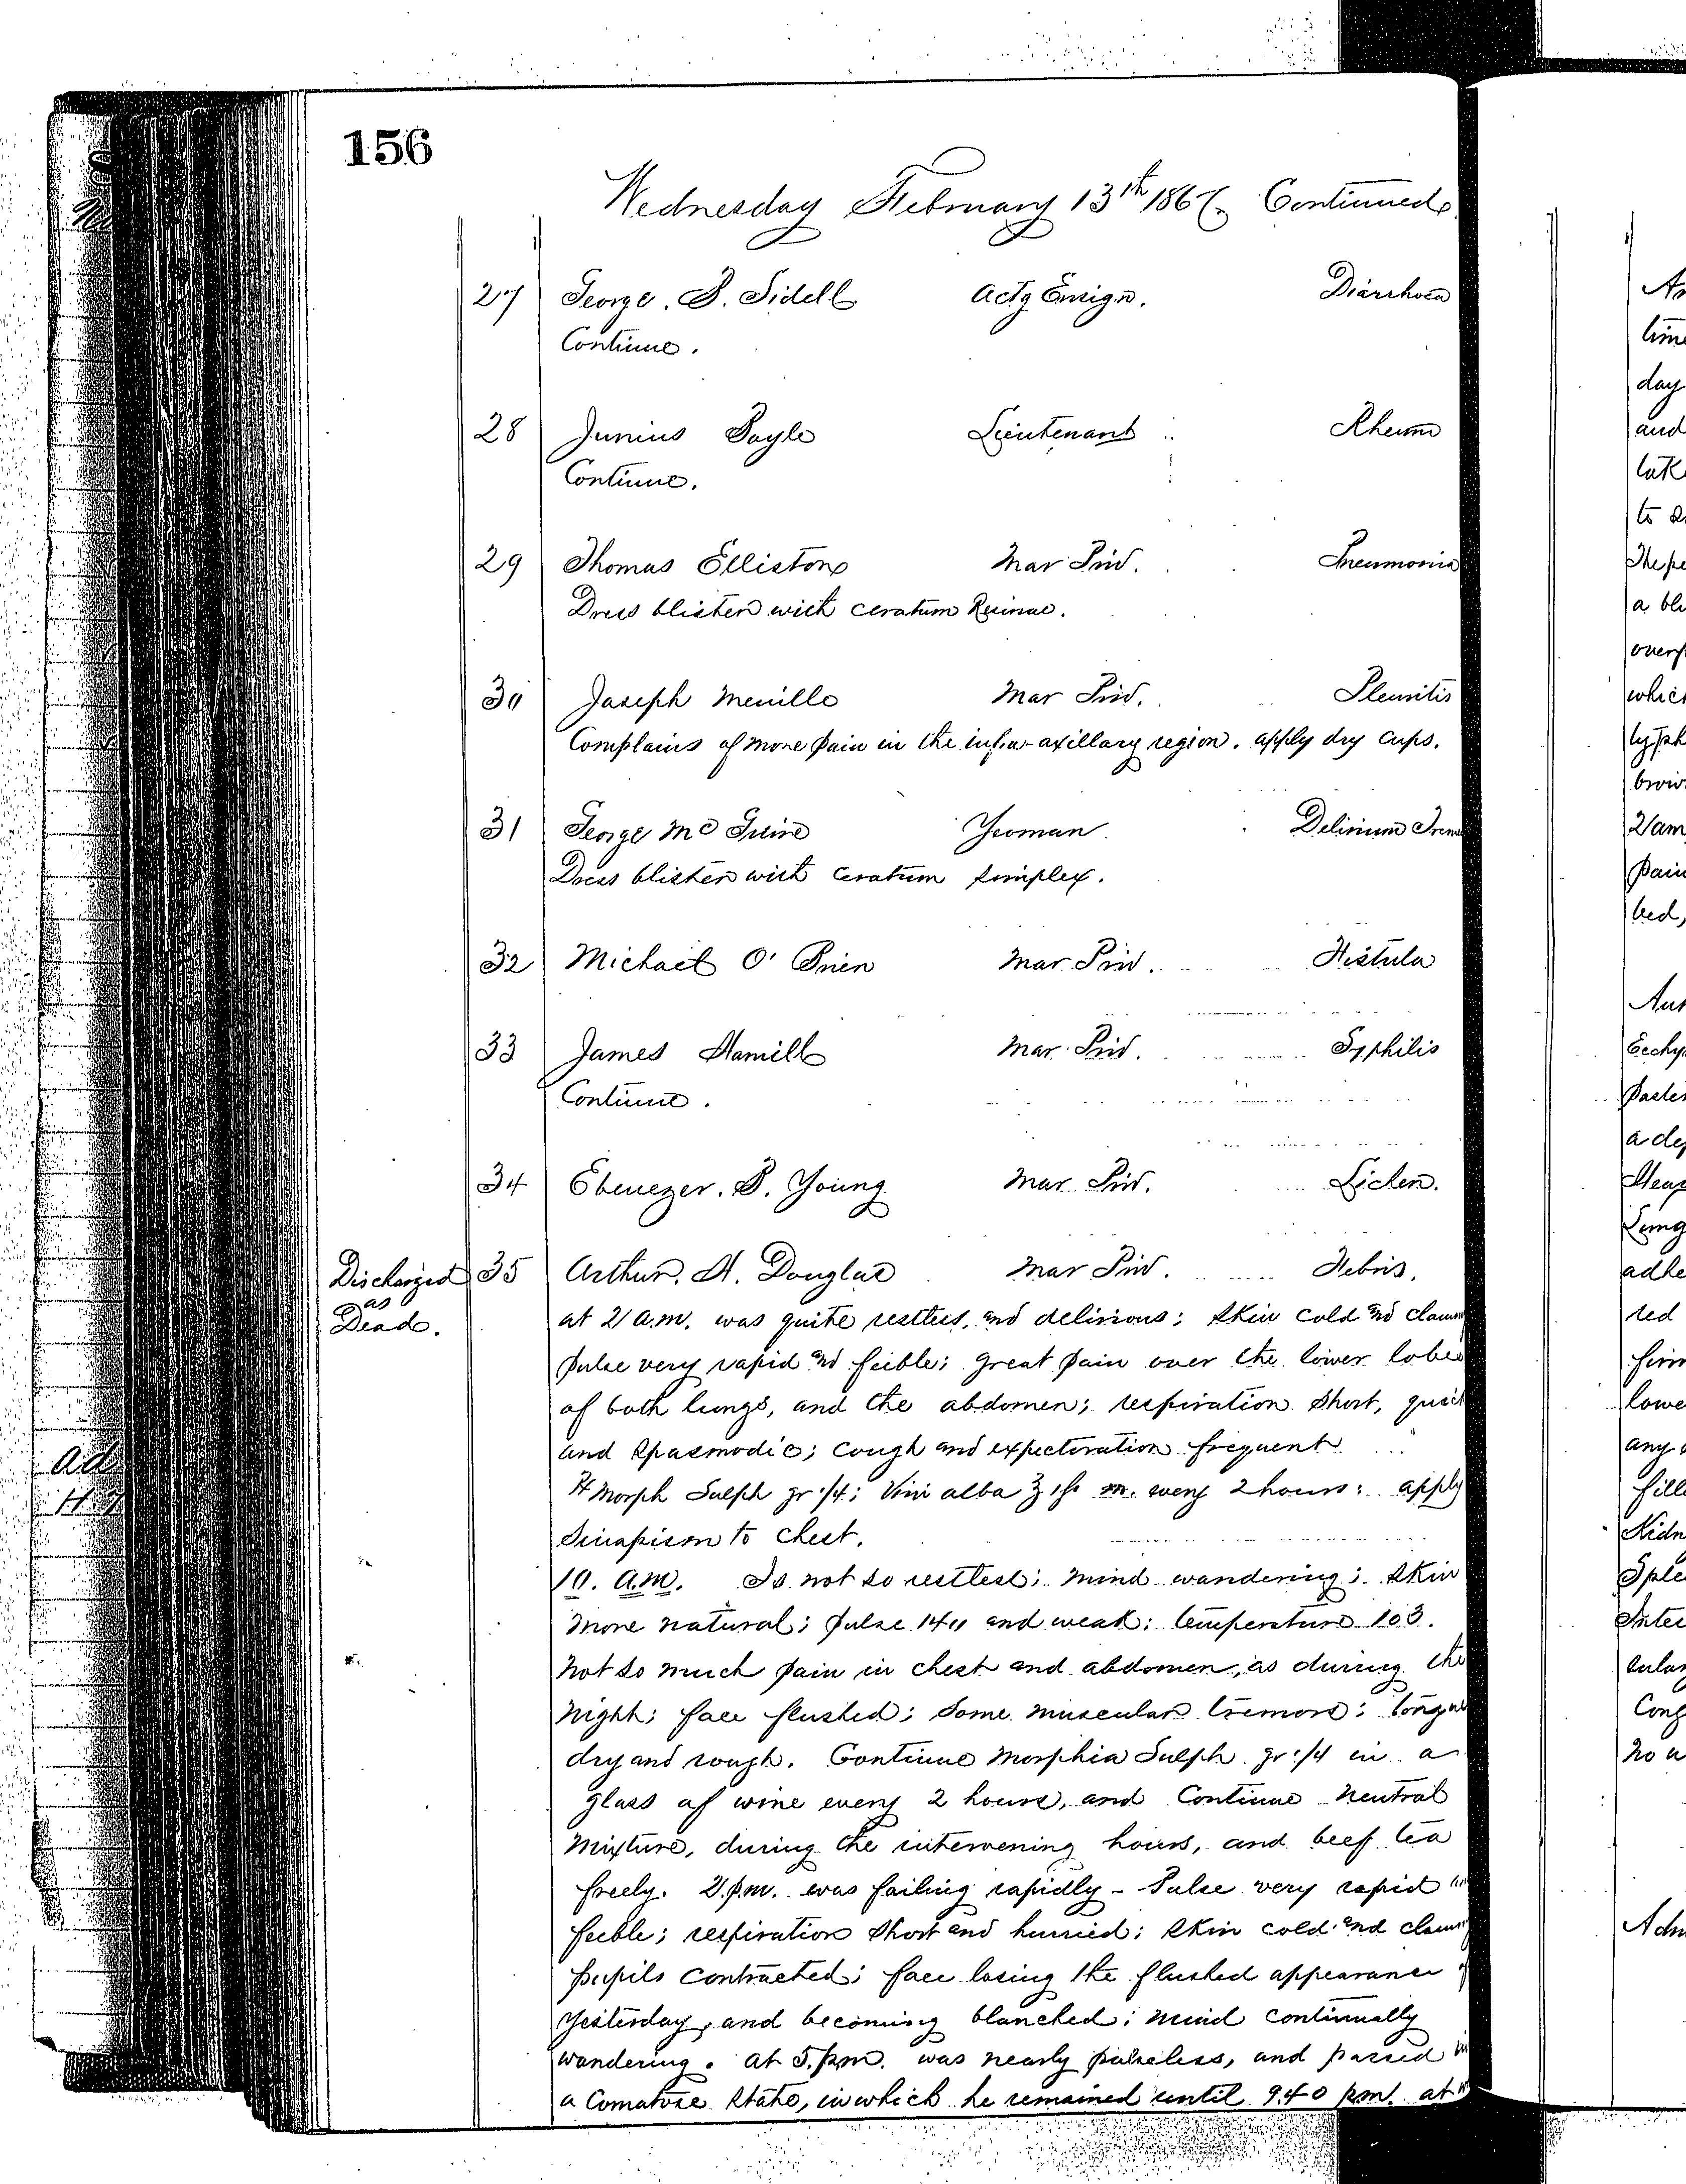 156
Wednesday February 13th 1867. Continued.
27 George. B. Sidell Actg Ensign. Diarrhoea
Continue.
28 Junius Boyle Lieutenant Rheum
Continue.
29 Thomas Elliston Mar Priv. Pneumonia
Dress blister with ceratum Resinae.
30 Joseph Merrille Mar Priv. Pleuritis
Complains of more pain in the infra-axillary region. apply dry cups.
31 George Mc Guire Yeoman Delirium Trem
Dress blister with ceratum simplex.
32 Michael O' Brien Mar. Priv. Fistula
33 James Hamill Mar. Priv. Syphilis
Continue.
34 Ebenezer. B. Young Mar. Priv. Lichen.
Discharged 35 Arthur. H. Douglas Mar Priv. Febris.
as
Dead.
at 2 a.m. was quite restless, and delirious; skin cold and clamm
pulse very rapid and feeble; great pain over the lower lobes
of both lungs, and the abdomen; respiration short, quick
and spasmodic; cough and expectoration frequent
Morph Sulph gr 1/4; Vini alba ℥ iss m. every 2 hours; apply
Sinapism to chest.
10. a.m. Is not so restless; mind wandering; skin
more natural; pulse 140 and weak; temperature 103.
not so much pain in chest and abdomen, as during the
night; face flushed; some muscular tremors; tongue
dry and rough. Continue Morphia Sulph gr 1/4 in a
glass of wine every 2 hours, and Continue neutral
mixture, during the intervening hours, and beef tea
freely. 2.p.m. was failing rapidly - Pulse very rapid
feeble; respiration short and hurried; skin cold and clam
pupils contracted; face losing the flushed appearance
yesterday, and becoming blanched; mind continually
wandering. at 5.p.m. was nearly pulseless, and passed
a Comatose state, in which he remained until 9.40 p.m. at
time
day
and
to
a bl
which
2 am
pain
bed,
Ecchy
red
lowe
any
fill
Kidn
Sple
Inte
Cong
no
Adm